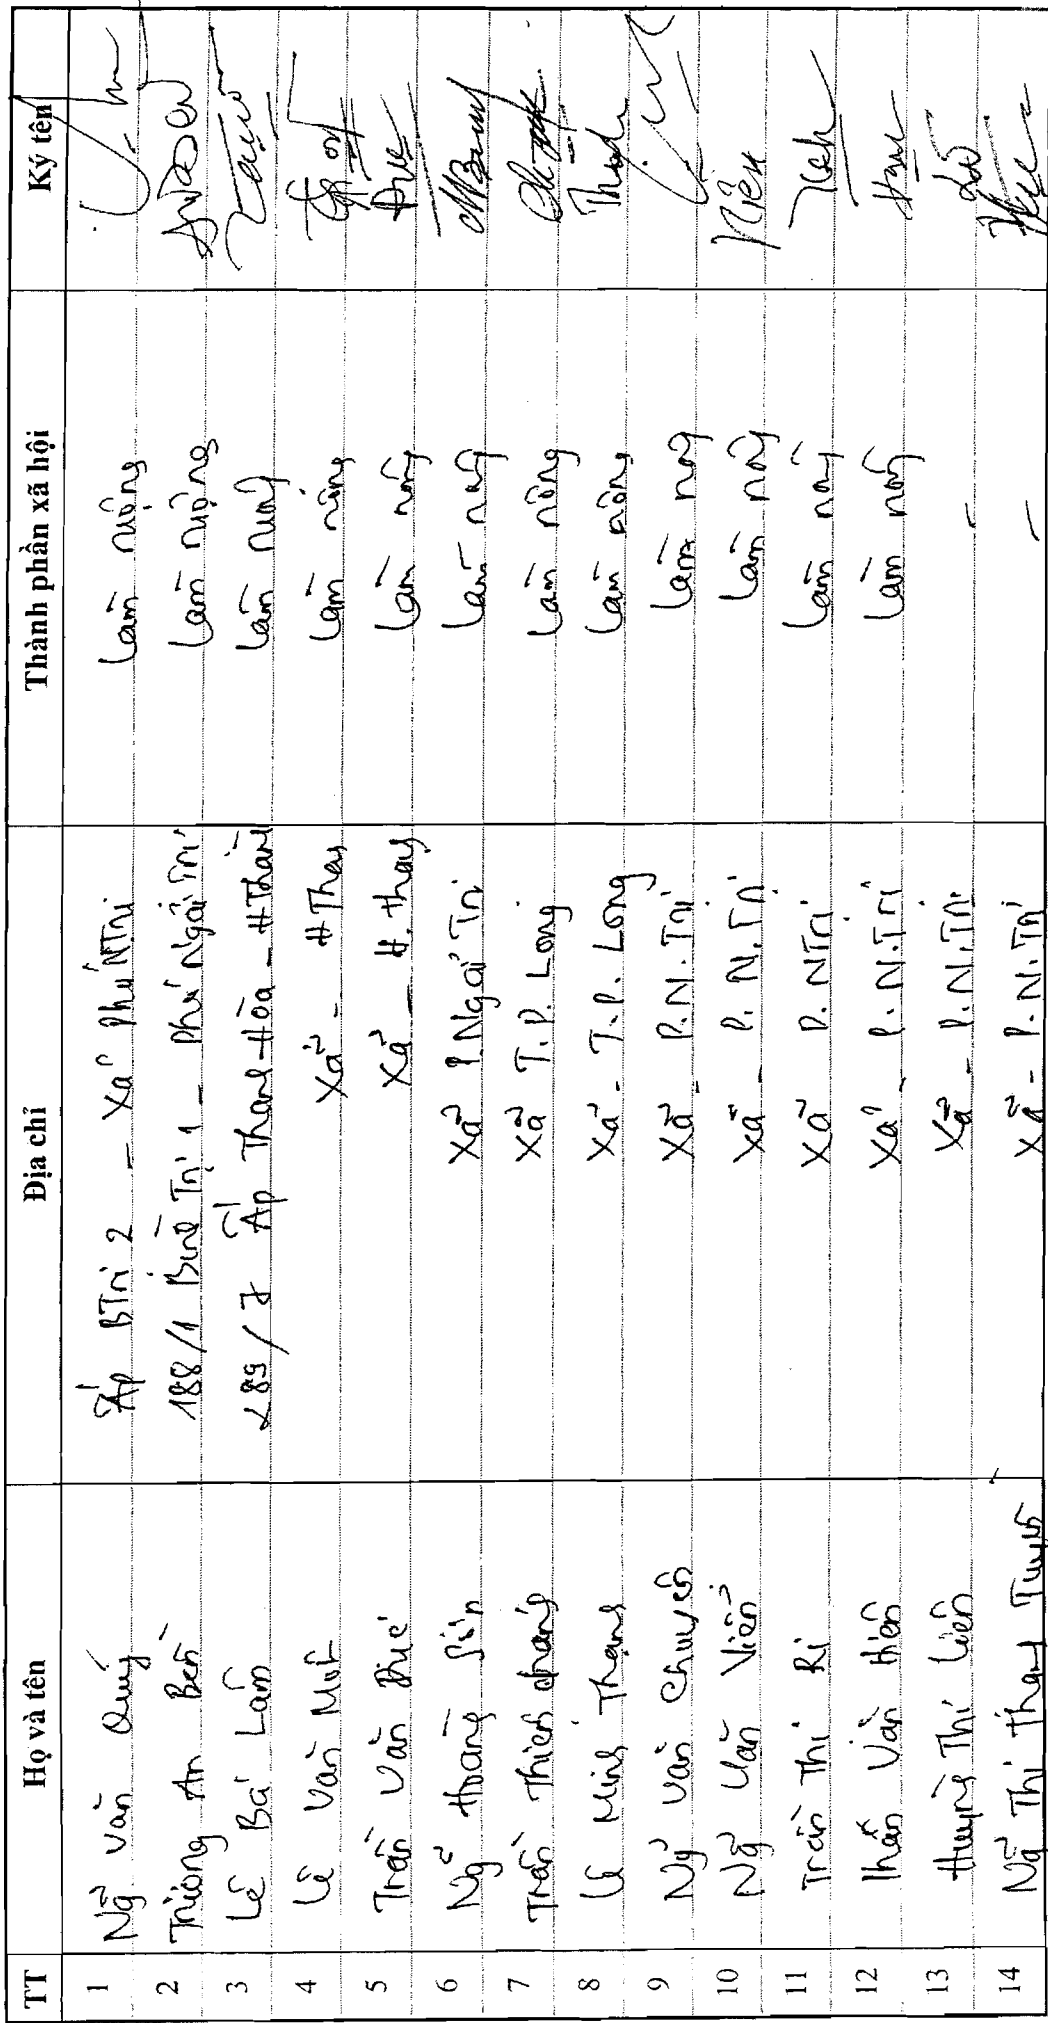 TT Họ và tên Địa chỉ Thành phần xã hội Ký tên
1 Ng̃ Văn Quý Ấp BTrị 2 - Xã Phú NTrí Làm ruộng
2 Trương An Bền 188/1 Bình Trị 1 - Phú Ngãi Trị Làm ruộng
3 Lê Bá Lâm 289/7 Ấp Thanh Hòa - H Thành Làm ruộng
4 Lê Văn Mót Xã - H Thạnh Làm nông
5 Trần Văn Đức Xã - H. Thạnh Làm nông Đức
6 Ng̃ Hoàng Sơn Xã P. Ngãi Trị Làm nông
7 Trần Thiện Xã T.P. Long Làm nông
8 Lê Minh Thạnh Xã - T.P. Long Làm nông Thạnh
9 Ng̃ Văn Chuyên Xã - P.N.Trị Làm nông
10 Ng̃ Văn Viên Xã - P. N.Trị Làm nông Viên
11 Trần Thị Ri Xã P. NTrị Làm nông
12 Phan Văn Hiền Xã - P.N.Trị Làm nông
13 Huỳnh Thị Liên Xã - P.N.Trị -
14 Ng̃ Thị Thanh Tuyền Xã - P.N.Trị -